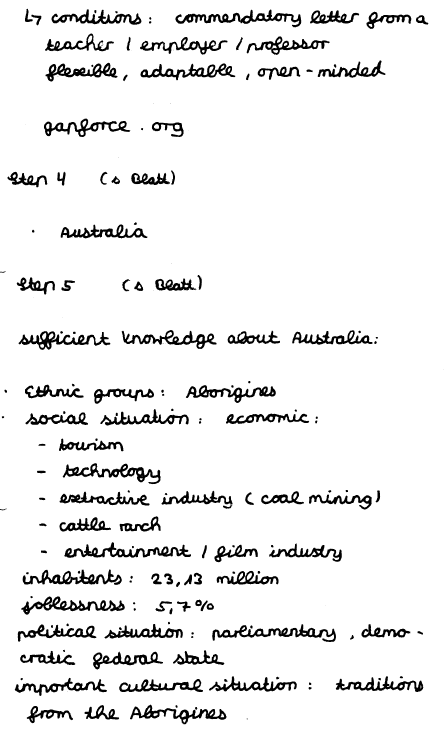 ↳ conditions: commendatory letter from a
teacher / employer / professor
flexible, adaptable, open-minded
ganforce.org
Step 4 (s Blatt)
· Australia
Step 5 (s Blatt)
sufficient knowledge about Australia:
· Ethnic groups: Aborigines
· social situation: economic:
- tourism
- technology
- extractive industry (coal mining)
- cattle ranch
- entertainment / film industry
inhabitents: 23,13 million
joblessness: 5,7%
political situation: parliamentary, demo-
cratic federal state
important cultural situation: traditions
from the Aborigines